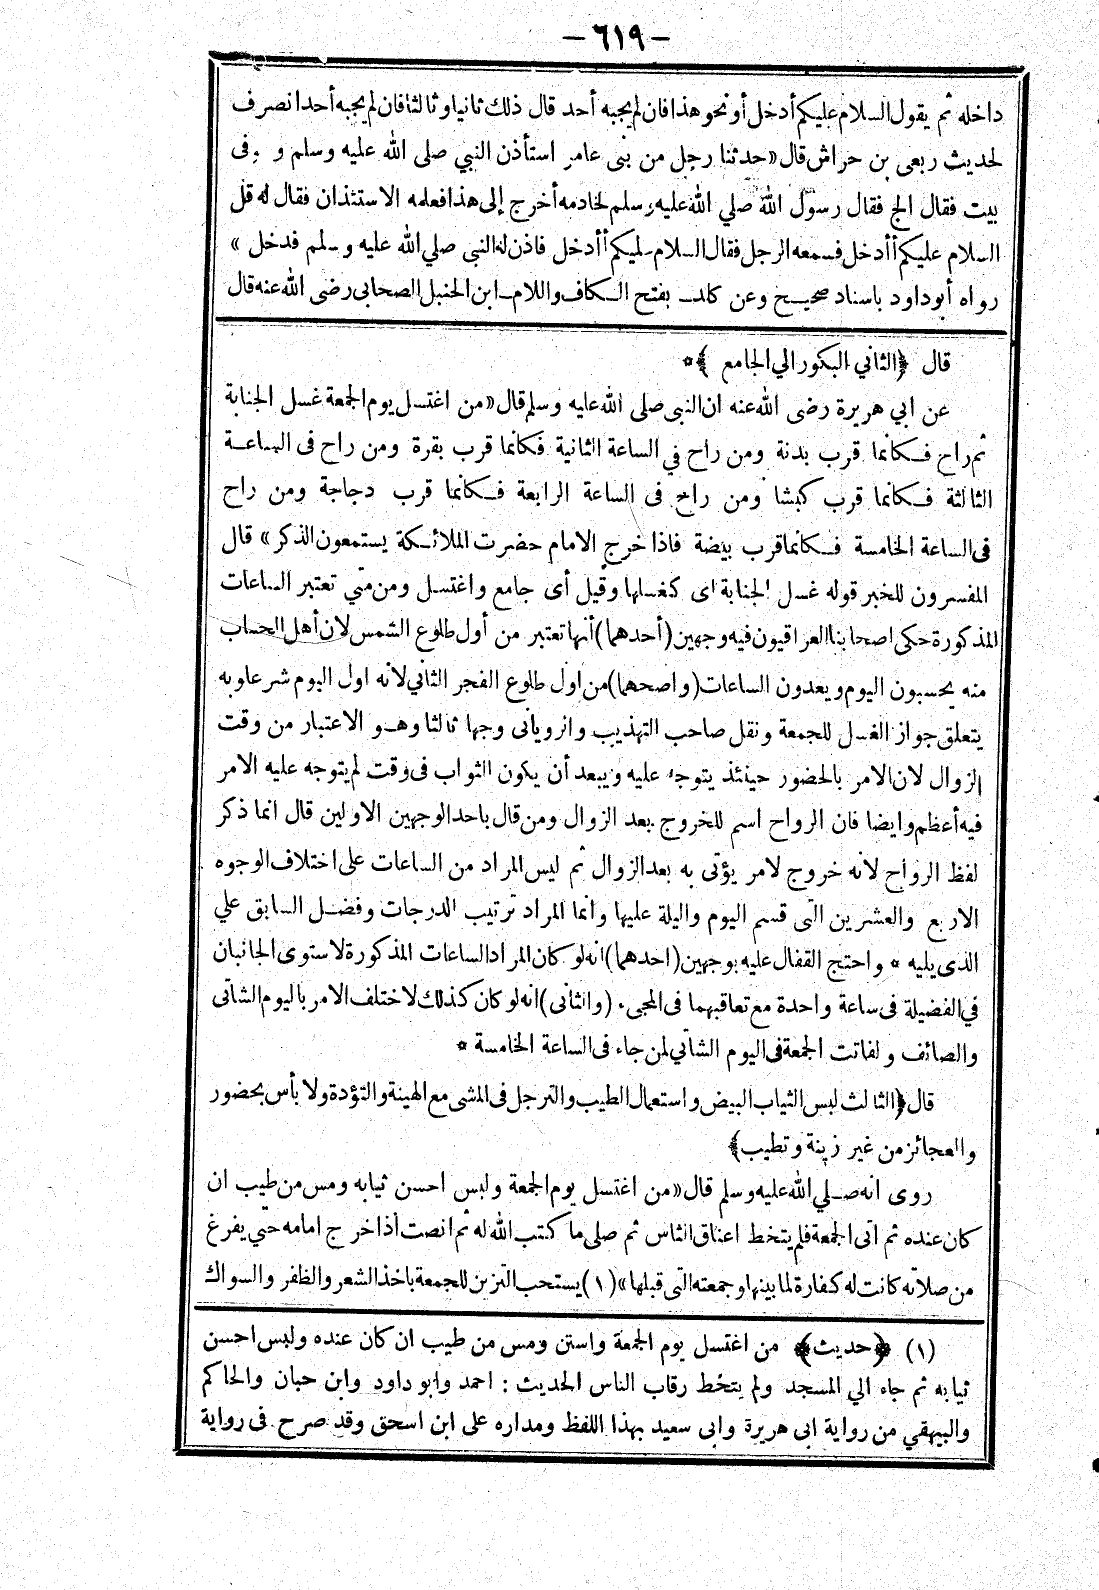 – ٦١٩ –
داخله ثم يقول السلام عليكم أدخل أو نحو هذا فان لم يجبه أحد قال ذلك ثانيا وثالثا فان لم يجبه أحد انصرف
لحديث ربعى بن حراش قال «حدثنا رجل من بنى عامر استأذن النبي صلى الله عليه وسلم و وفى
بيت فقال الج فقال رسول الله صلي الله عليه وسلم لخادمه أخرج إلى هذا فعلمه الاستئذان فقال له قل
السلام عليكم أأدخل فسمعه الرجل فقال السلام عليكم أأدخل فاذن له النبى صلي الله عليه وسلم فدخل »
رواه أبو داود باسناد صحيح وعن كلدة بفتح الكاف واللام ابن الحنبل الصحابى رضى الله عنه قال
قال ﴿الثاني البكور الي الجامع ﴾*
عن ابي هريرة رضى الله عنه ان النبى صلى الله عليه وسلم قال «من اغتسل يوم الجمعة غسل الجنابة
ثم راح فكأنما قرب بدنة ومن راح في الساعة الثانية فكأنما قرب بقرة ومن راح فى الساعة
الثالثة فكأنما قرب كبشا ومن راح فى الساعة الرابعة فكأنما قرب دجاجة ومن راح
فى الساعة الخامسة فكأنما قرب بيضة فاذا خرج الامام حضرت الملائكة يستمعون الذكر » قال
المفسرون للخبر قوله غسل الجنابة اى كغسلها وقيل أى جامع واغتسل ومن متي تعتبر الساعات
المذكورة حكى اصحابنا العراقيون فيه وجهين (أحدهما) أنها تعتبر من أول طلوع الشمس لان أهل الحساب
منه يحسبون اليوم ويعدون الساعات (واصحهما) من اول طلوع الفجر الثاني لانه اول اليوم شرعا وبه
يتعلق جواز الغسل للجمعة ونقل صاحب التهذيب والرويانى وجها ثالثا وهو الاعتبار من وقت
الزوال لان الامر بالحضور حينئذ يتوجه عليه ويبعد أن يكون الثواب فى وقت لم يتوجه عليه الامر
فيه أعظم وايضا فان الرواح اسم للخروج بعد الزوال ومن قال باحد الوجهين الاولين قال انما ذكر
لفظ الرواح لانه خروج لامر يؤتى به بعد الزوال ثم ليس المراد من الساعات على اختلاف الوجوه
الاربع والعشرين التى قسم اليوم والليلة عليها وانما المراد ترتيب الدرجات وفضل السابق علي
الذى يليه * واحتج القفال عليه بوجهين (احدهما) انه لو كان المراد الساعات المذكورة لاستوى الجانبان
في الفضيلة فى ساعة واحدة مع تعاقبهما فى المجىء (والثانى) انه لو كان كذلك لاختلف الامر باليوم الشاتى
والصائف ولفاتت الجمعة فى اليوم الشاتي لمن جاء فى الساعة الخامسة *
قال ﴿الثالث لبس الثياب البيض واستعمال الطيب والترجل فى المشى مع الهينة والتؤدة ولا بأس بحضور
والعجائز من غير زينة وتطيب﴾
روى انه صلي الله عليه وسلم قال «من اغتسل يوم الجمعة ولبس احسن ثيابه ومس من طيب ان
كان عنده ثم اتى الجمعة فلم يتخط اعناق الناس ثم صلى ما كتب الله له ثم انصت اذا خرج امامه حتي يفرغ
من صلاته كانت له كفارة لما بينها وجمعته التى قبلها» (١) يستحب التزين للجمعة باخذ الشعر والظفر والسواك
(١) ﴿حديث﴾ من اغتسل يوم الجمعة واستن ومس من طيب ان كان عنده ولبس احسن
ثيابه ثم جاء الي المسجد ولم يتخط رقاب الناس الحديث : احمد وابو داود وابن حبان والحاكم
والبيهقي من رواية ابى هريرة وابى سعيد بهذا اللفظ ومداره على ابن اسحق وقد صرح فى رواية